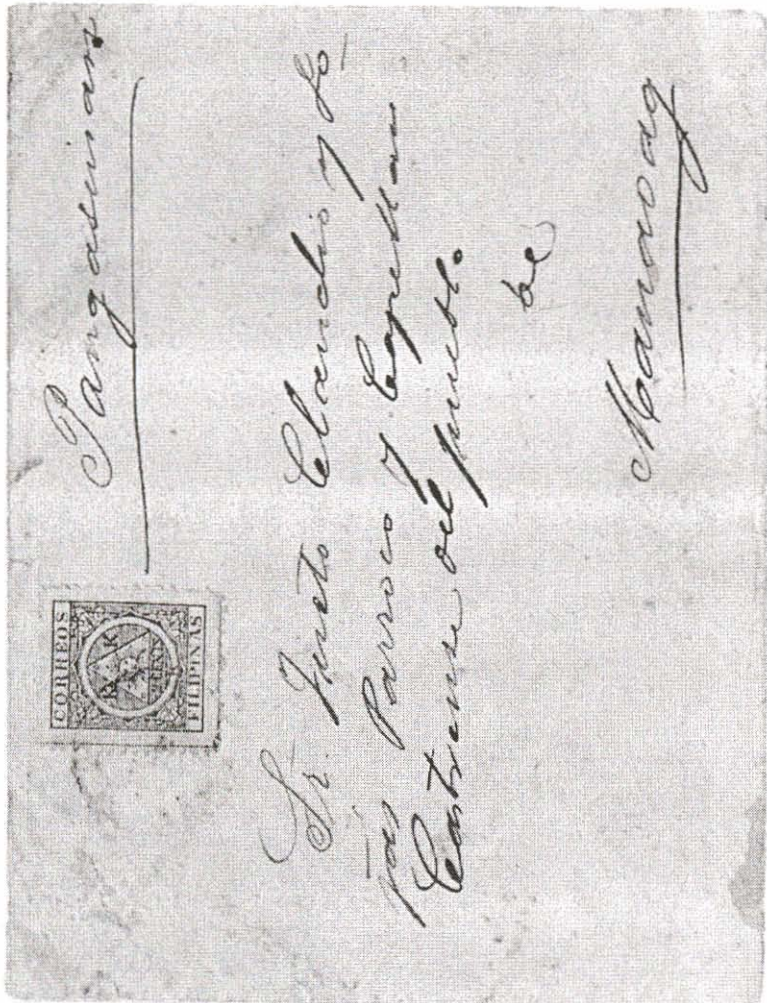 Pangasinan
CORREOS
K K
FILIPINAS
Sr. Justo Claudio y Fo-
jas Parroco y Capellan
Castrense del pueblo
de
Manaoag